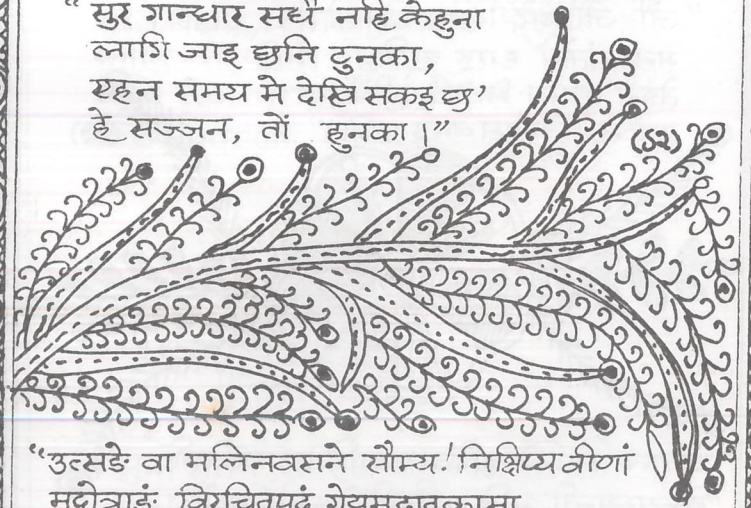 “ सुर गान्धार सधै नहि केहुना
लागि जाइ छनि टुनका,
एहन समय मे देखि सकइ छ’
हे सज्जन, तों हुनका।”
(८२)
“उत्सङे वा मलिनवसने सौम्य! निक्षिप्य वीणां
मद्गोत्राङं विरचितपदं गेयमुद्गातुकामा